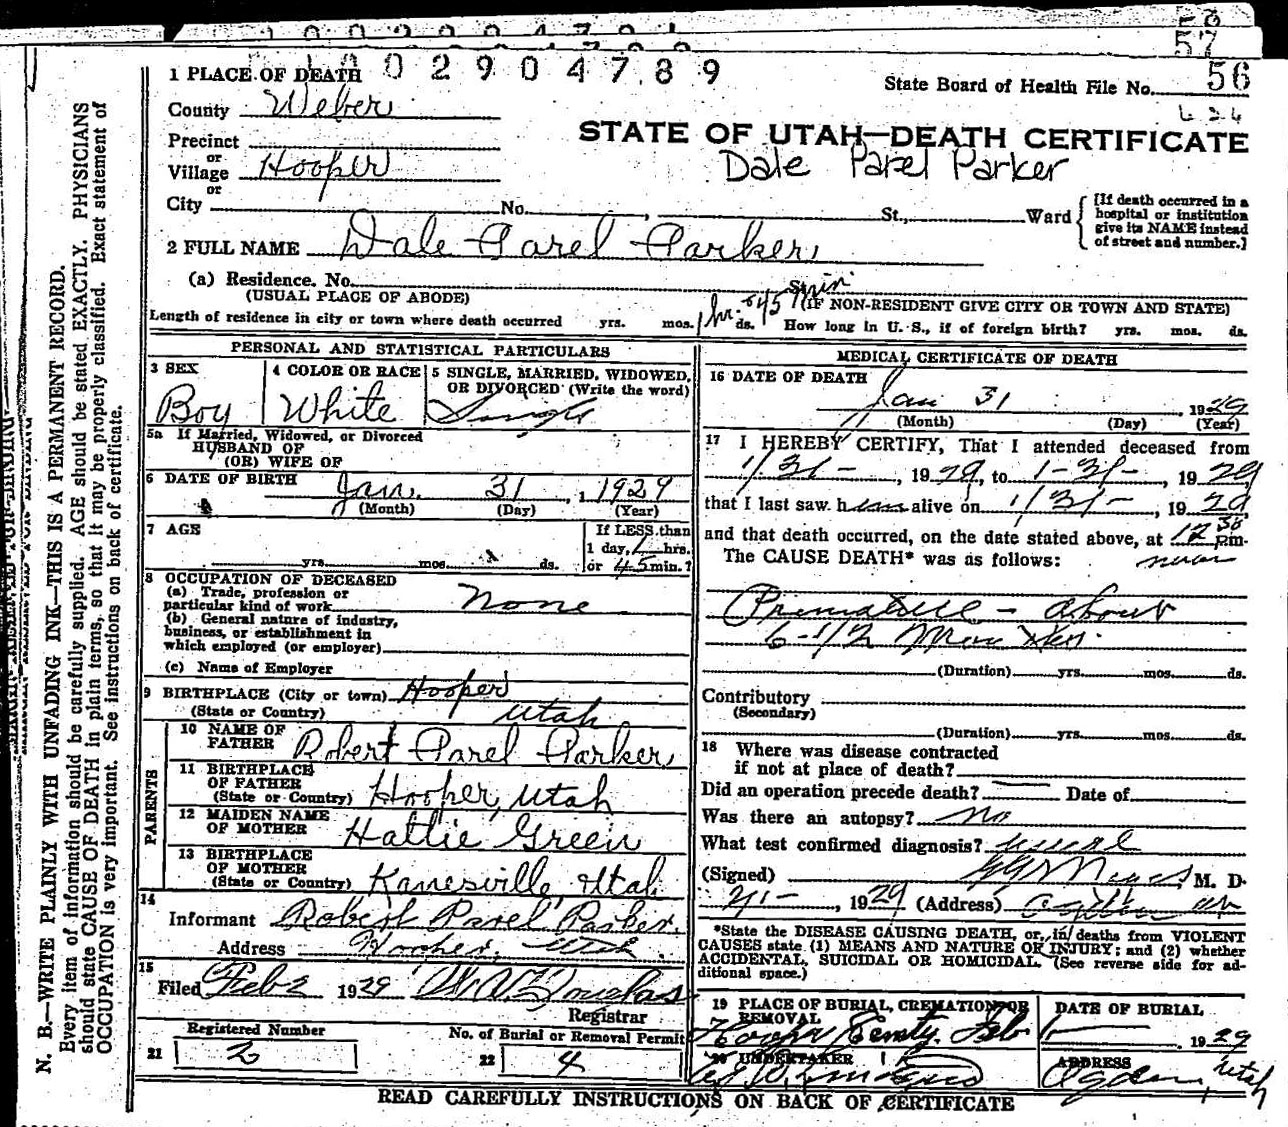 58
57
1 0 0 2 9 0 4 7 8 9
1 PLACE OF DEATH
State Board of Health File No. 56
County Weber
624
Precinct
STATE OF UTAH—DEATH CERTIFICATE
or
Village Hooper
Dale Parel Parker
or
City No. , St., Ward
[If death occurred in a hospital or institution give its NAME instead of street and number.]
2 FULL NAME Dale Parel Parker
(a) Residence. No. St.
(USUAL PLACE OF ABODE)
(IF NON-RESIDENT GIVE CITY OR TOWN AND STATE)
Length of residence in city or town where death occurred yrs. mos. 1 hr. 45 min ds. How long in U. S., if of foreign birth? yrs. mos. ds.
PERSONAL AND STATISTICAL PARTICULARS
3 SEX Boy
4 COLOR OR RACE White
5 SINGLE, MARRIED, WIDOWED, OR DIVORCED (Write the word) Single
5a If Married, Widowed, or Divorced
HUSBAND OF
(OR) WIFE OF
6 DATE OF BIRTH Jan. 31, 1929
(Month) (Day) (Year)
7 AGE
yrs. mos. ds.
If LESS than
1 day, 1 hrs.
or 45 min.?
8 OCCUPATION OF DECEASED
(a) Trade, profession or
particular kind of work None
(b) General nature of industry,
business, or establishment in
which employed (or employer)
(c) Name of Employer
9 BIRTHPLACE (City or town) Hooper
(State or Country) Utah
PARENTS
10 NAME OF FATHER Robert Parel Parker
11 BIRTHPLACE OF FATHER
(State or Country) Hooper, Utah
12 MAIDEN NAME OF MOTHER Hattie Green
13 BIRTHPLACE OF MOTHER
(State or Country) Kanesville, Utah
14
Informant Robert Parel Parker.
Address Hooper, Utah.
15
Filed Feb 2 1929 Douglas
Registrar
Registered Number
21 2
No. of Burial or Removal Permit
22 4
MEDICAL CERTIFICATE OF DEATH
16 DATE OF DEATH
Jan 31, 1929
(Month) (Day) (Year)
17 I HEREBY CERTIFY, That I attended deceased from
1/31-, 1929, to 1-31-, 1929,
that I last saw him alive on 1/31-, 1929,
and that death occurred, on the date stated above, at 12 30 pm.
The CAUSE DEATH* was as follows: noon
Premature - about
6-1/2 Months.
(Duration) yrs. mos. ds.
Contributory
(Secondary)
(Duration) yrs. mos. ds.
18 Where was disease contracted
if not at place of death?
Did an operation precede death? Date of
Was there an autopsy? No
What test confirmed diagnosis? usual
(Signed) M. D.
2/1-, 1929 (Address) Ogden Ut
*State the DISEASE CAUSING DEATH, or, in deaths from VIOLENT
CAUSES state (1) MEANS AND NATURE OF INJURY; and (2) whether
ACCIDENTAL, SUICIDAL OR HOMICIDAL. (See reverse side for ad-
ditional space.)
19 PLACE OF BURIAL, CREMATION OR REMOVAL
Hooper Cemty.
DATE OF BURIAL
Feb 1- 1929
20 UNDERTAKER
ADDRESS
Ogden, Utah
READ CAREFULLY INSTRUCTIONS ON BACK OF CERTIFICATE
N. B.—WRITE PLAINLY WITH UNFADING INK—THIS IS A PERMANENT RECORD.
Every item of information should be carefully supplied. AGE should be stated EXACTLY. PHYSICIANS
should state CAUSE OF DEATH in plain terms, so that it may be properly classified. Exact statement of
OCCUPATION is very important. See instructions on back of certificate.